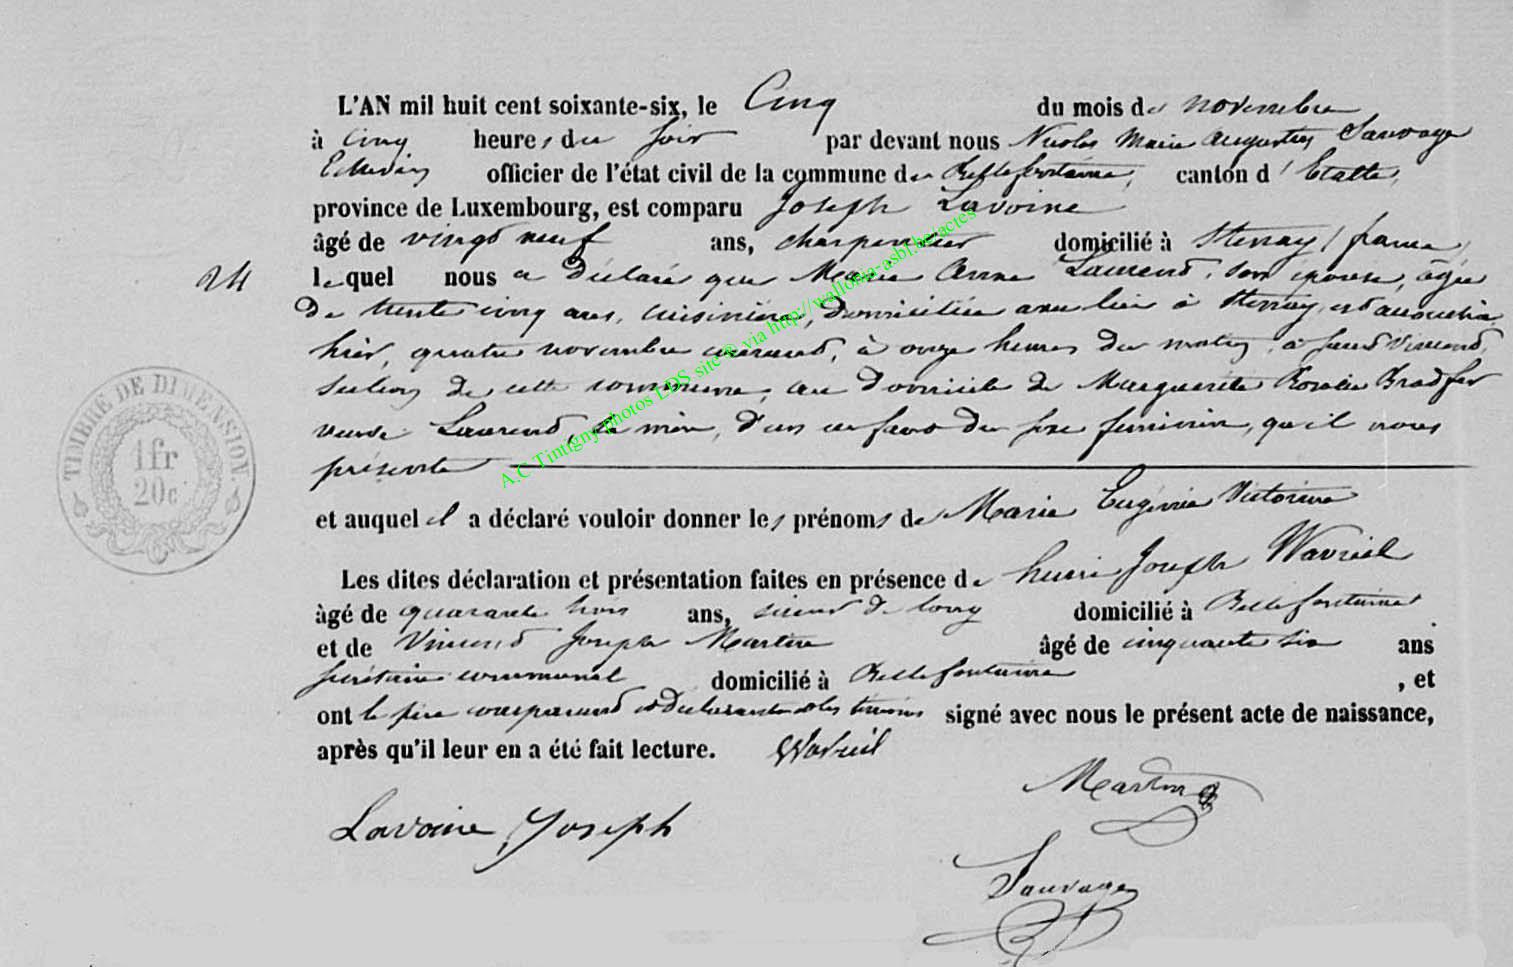 L'AN mil huit cent soixante-six, le Cinq du mois de novembre
à cinq heures du soir par devant nous Nicolas Marie Augustin Sauvage
Echevin officier de l'état civil de la commune de Bellefontaine, canton d'Etalle,
province de Luxembourg, est comparu Joseph Lavoine
âgé de vingt neuf ans, charpentier domicilié à Stenay (france)
24 lequel nous a déclaré que Marie Anne Laurend, son épouse, âgée
de trente cinq ans, cuisinière, domiciliée avec lui à Stenay, est accouchée
hier, quatre novembre courant, à onze heures du matin, à Saint Vincent,
section de cette commune, au domicile de Marguerite Rosalie Bradfer
veuve Laurend, sa mère, d'un enfant du sexe féminin, qu'il nous
présente
et auquel il a déclaré vouloir donner les prénoms de Marie Eugénie Victorine
Les dites déclaration et présentation faites en présence de henri Joseph Wavreil
âgé de quarante trois ans, scieur de long domicilié à Bellefontaine
et de Vincent Joseph Martin âgé de cinquante six ans
secrétaire communal domicilié à Bellefontaine, et
ont le père comparant et déclarant et les témoins signé avec nous le présent acte de naissance,
après qu'il leur en a été fait lecture. Wavreil
Martin
Lavoine Joseph
Sauvage
TIMBRE DE DIMENSION.
1fr
20c
A.C Tintigny photos LDS site ® via http://wallonia-asbl.be/actes